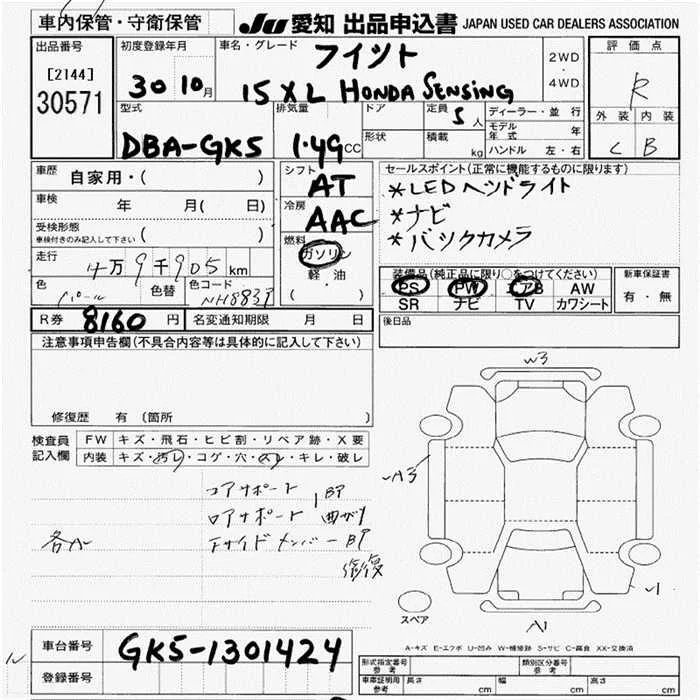 車内保管・守衛保管
JU 愛知 出品申込書 JAPAN USED CAR DEALERS ASSOCIATION
出品番号
[2144]
30571
初度登録年月
30 10月
車名・グレード
フイツト
15XL HONDA SENSING
2WD
・
4WD
評価点
R
外装 内装
C B
型式
DBA-GK5
排気量
1.49 CC
ドア
形状
定員 5人
積載 kg
ディーラー・並行
モデル年式 年
ハンドル 左・右
車歴
自家用・( )
車検 年 月( 日)
受検形態
車検付きのみ記入して下さい ( )
走行 4万9千905km
色 パール 色替 色コード NH883P
シフト
AT
冷房
AAC
燃料
ガソリン
軽・油
( ・ )
セールスポイント(正常に機能するものに限ります)
*LEDヘッドライト
*ナビ
*バックカメラ
装備品(純正品に限り○をつけてください)
PS PW アB AW
SR ナビ TV カワシート
新車保証書
有・無
R券 8160円 名変通知期限 月 日
後日品
注意事項申告欄(不具合内容等は具体的に記入して下さい)
修復歴 有 〔箇所
検査員
記入欄
FW キズ・飛石・ヒビ割・リペア跡・X要
内装 キズ・汚レ・コゲ・穴・スレ・キレ・破レ
コアサポート
BP
ロアサポート
曲ガリ
FサイドメンバーBP
修復
W3
A3
A1
スペア
A-キズ E-エクボ U-凹み W-補修跡 S-サビ C-腐食 XX-交換済
車台番号 GK5-1301424
登録番号
形式指定番号
参考
類別区分番号
参考
車庫証明用
参考
長さ cm 幅 cm 高さ cm